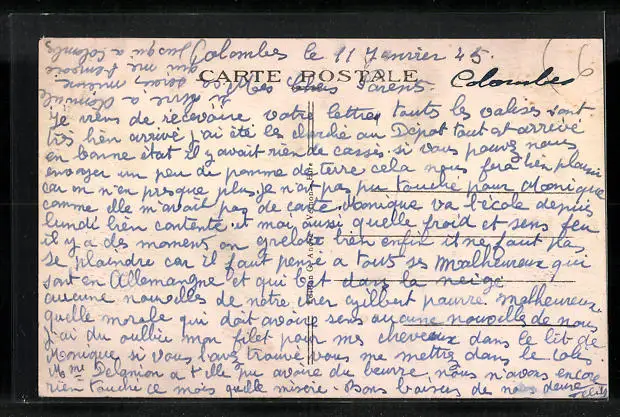 Colombes le 11 Janvier 45.
CARTE POSTALE
Colombes
Mes chers Parents.
Je viens de récevoire votre lettre, touts les valises sont
très bien arrivé j'ai été les cherché au Dépot tout est arrivé
en bonne état il y avait rien de cassé. si vous pouvez nous
envoyer un peu de pomme de terre cela nous fera bien plaisir
car on n'en presque plus, je n'ai pas pu touché pour Monique
comme elle m'avait pas de carte. Monique va a l'école depuis
lundi bien contente. et moi aussi quelle froid et sens feu
il y a des moments on grelote bien enfin il ne faut pas
se plaindre car il faut pensé a tout ses Malheureux qui
sont en Allemangne et qui but dans la neige
aucune nouvelles de notre cher gilbert pauvre malheureux
quelle morale qui doit avoire sens aucune nouvelle de nous
j'ai du oublier mon filet pour mes cheveux dans le lit de
Monique si vous l'avez trouvé vous me mettrez dans le colis.
Mme a t'elle pu avoire du beurre, nous n'avons encore
rien touché ce mois quelle misére. Bons baisers de nous deux